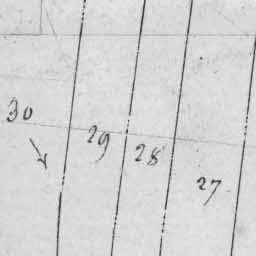 30
29
28
27